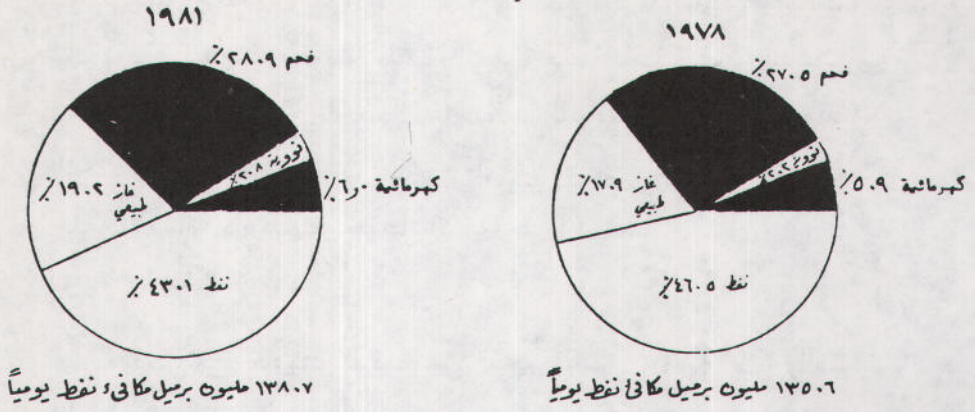 ١٩٧٨
فحم ٢٧.٥٪
نووية ٢.٢٪
كهرمائية ٥.٩٪
غاز
طبيعي
١٧.٩٪
نفط ٤٦.٥٪
١٣٥.٦ مليون برميل مكافئ نفط يومياً
١٩٨١
فحم ٢٨.٩٪
نووية ٢.٨٪
كهرمائية ٦,٠٪
غاز
طبيعي
١٩.٢٪
نفط ٤٣.١٪
١٣٨.٧ مليون برميل مكافىء نفط يومياً